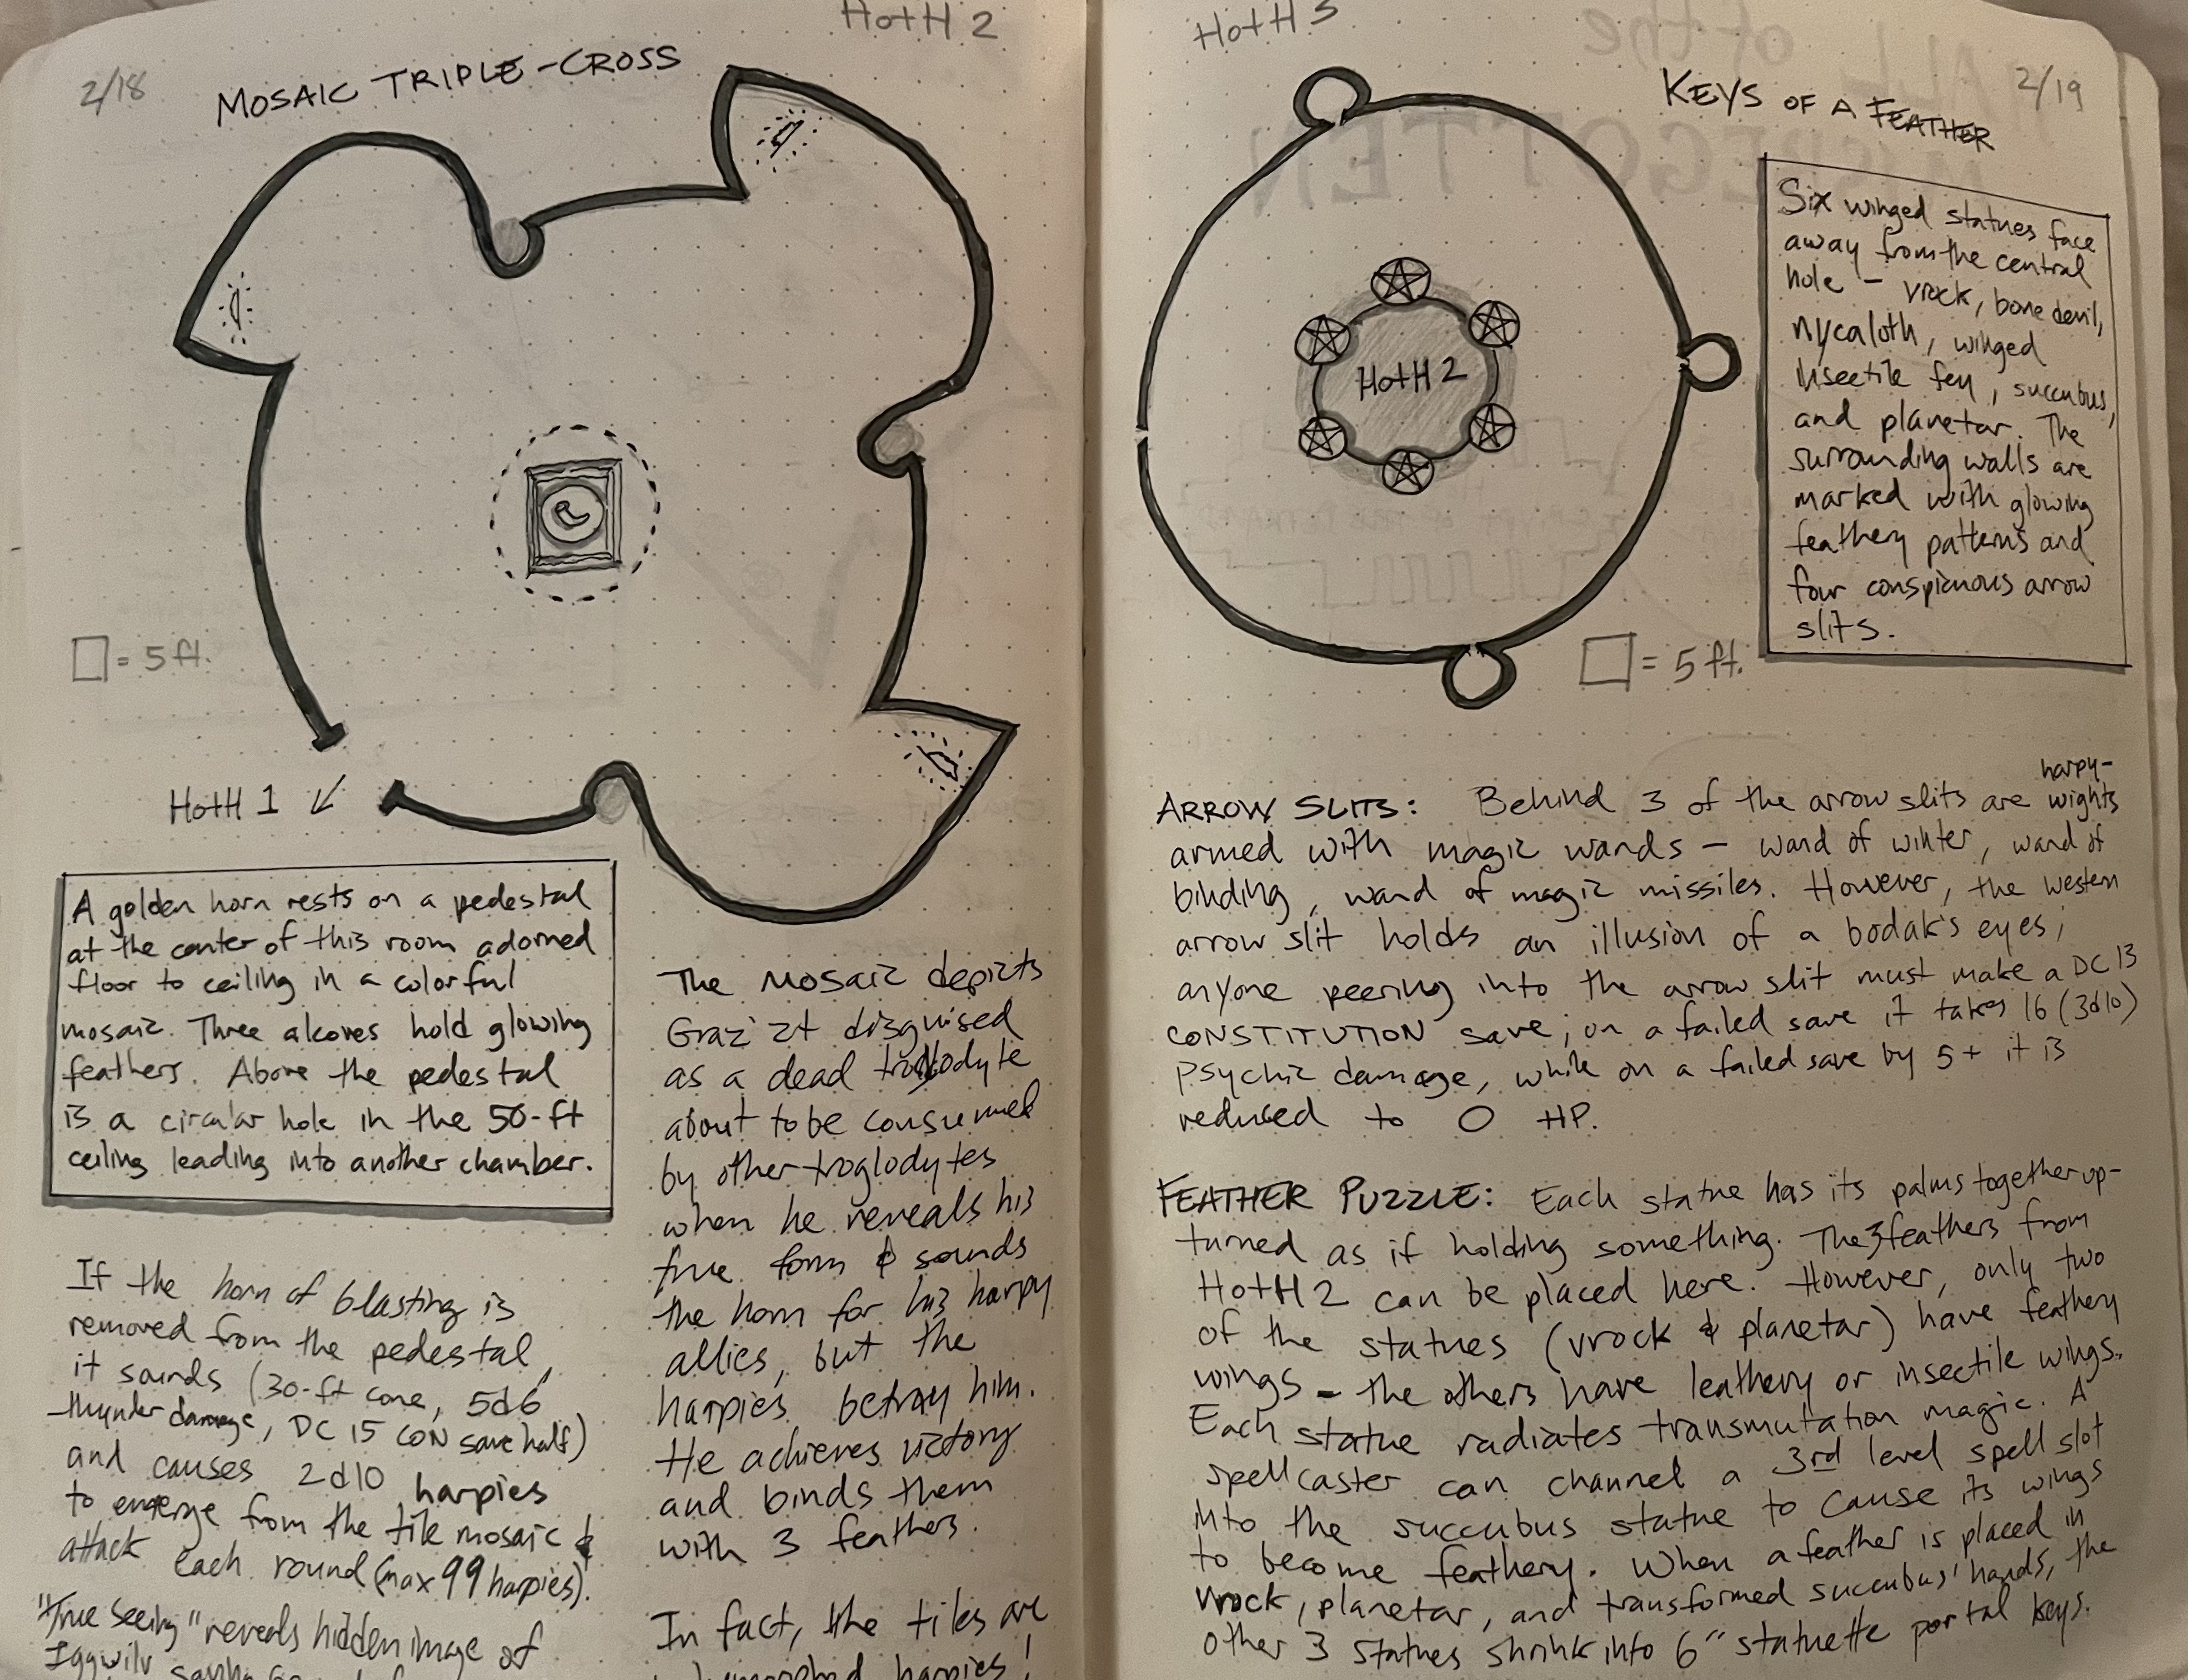 HotH 2
2/18
MOSAIC TRIPLE-CROSS
□ = 5 ft.
HotH 1 ↙
A golden horn rests on a pedestal
at the center of this room adorned
floor to ceiling in a colorful
mosaic. Three alcoves hold glowing
feathers. Above the pedestal
is a circular hole in the 50-ft
ceiling leading into another chamber.
If the horn of blasting is
removed from the pedestal,
it sounds (30-ft cone, 5d6
thunder damage, DC 15 CON save half)
and causes 2d10 harpies
to emerge from the tile mosaic &
attack each round (max 99 harpies).
"True Seeing" reveals hidden image of
Iggwilv
The mosaic depicts
Graz'zt disguised
as a dead troglodyte
about to be consumed
by other troglodytes
when he reveals his
true form & sounds
the horn for his harpy
allies, but the
harpies betray him.
He achieves victory
and binds them
with 3 feathers.
In fact, the tiles are
harpies!
HotH 3
2/19
KEYS OF A FEATHER
HotH 2
Six winged statues face
away from the central
hole - vrock, bone devil,
nycaloth, winged
insectile fey, succubus,
and planetar. The
surrounding walls are
marked with glowing
feathery patterns and
four conspicuous arrow
slits.
□ = 5 ft.
ARROW SLITS: Behind 3 of the arrow slits are harpy-wights
armed with magic wands - wand of winter, wand of
binding, wand of magic missiles. However, the western
arrow slit holds an illusion of a bodak's eyes;
anyone peering into the arrow slit must make a DC 13
CONSTITUTION save; on a failed save it takes 16 (3d10)
psychic damage, while on a failed save by 5+ it is
reduced to 0 HP.
FEATHER PUZZLE: Each statue has its palms together up-
turned as if holding something. The 3 feathers from
HotH 2 can be placed here. However, only two
of the statues (vrock & planetar) have feathery
wings - the others have leathery or insectile wings.
Each statue radiates transmutation magic. A
spellcaster can channel a 3rd level spell slot
into the succubus statue to cause its wings
to become feathery. When a feather is placed in
vrock, planetar, and transformed succubus' hands, the
other 3 statues shrink into 6" statuette portal keys.